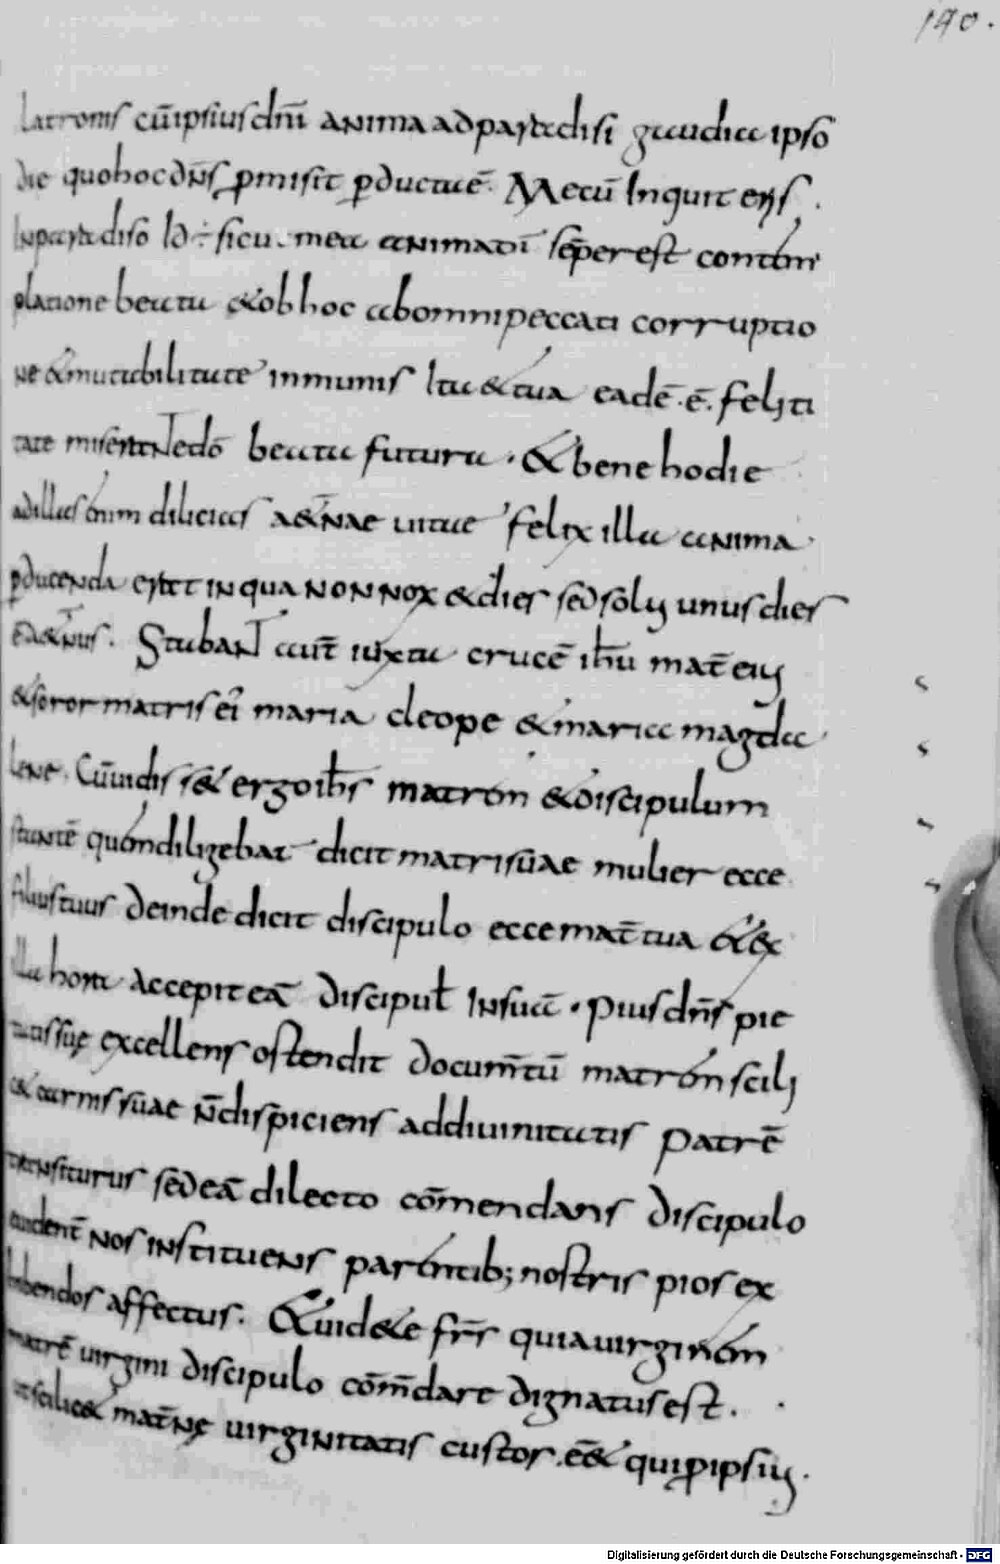 190.
latronis cūipsius dn̄i anima ad paradisi gaudia ipso
die quo hoc dn̄s ꝓmisit ꝑductaē. Mecū Inquit eris.
Inparadiso Id÷ sicu mea animadī sēper est contem
platione beata &ob hoc abomni peccati corruptio
ne &mutabilitate inmunis Ita &tua eadē .ē. felici
tate miserantedō beata futura. &bene hodie
adillas enim dilicias a&ernae uitae felix illa anima
ꝑducenda erat in qua non nox &dies sed solus unus dies
ēa&ernus. Stabant aūt iuxta crucē ih̄u mat̄ eius
&soror matris eī maria cleope &maria magda
lene. Cūuidiss& ergo ih̄s matrem &discipulum
stantē quem diligebat dicit matri sūae mulier ecce
filius tuus deinde dicit discipulo ecce mat̄ tua &ex
illa hora accepit eā discipuł Insuā. Pius dn̄s pie
tatis suę excellens ostendit docum̄tū matrem scili
c& carnis sūae n̄dispiciens ad diuinitatis patrē
transiturus sed eā dilecto cōmendans discipulo
euident̄ nos instituens parentib; nostris pios ex
hibendos affectus. &uid&e fr̄s quia uirginem
matrē uirgini discipulo cōm̄dare dignatus est.
utscilic& mat̄nę uirginitatis custos .ē& qui ꝓ ipsius.
Digitalisierung gefördert durch die Deutsche Forschungsgemeinschaft - DFG